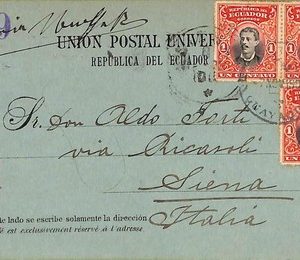 UNION POSTAL UNIVER
REPUBLICA DEL ECUADOR
REPUBLICA DEL
ECUADOR
1 1
UN CENTAVO
Sr. Don Aldo Forti
via Ricasoli
Siena
Italia
de lado se escribe solamente la dirección
té est exclusivement réservé à l'adresse